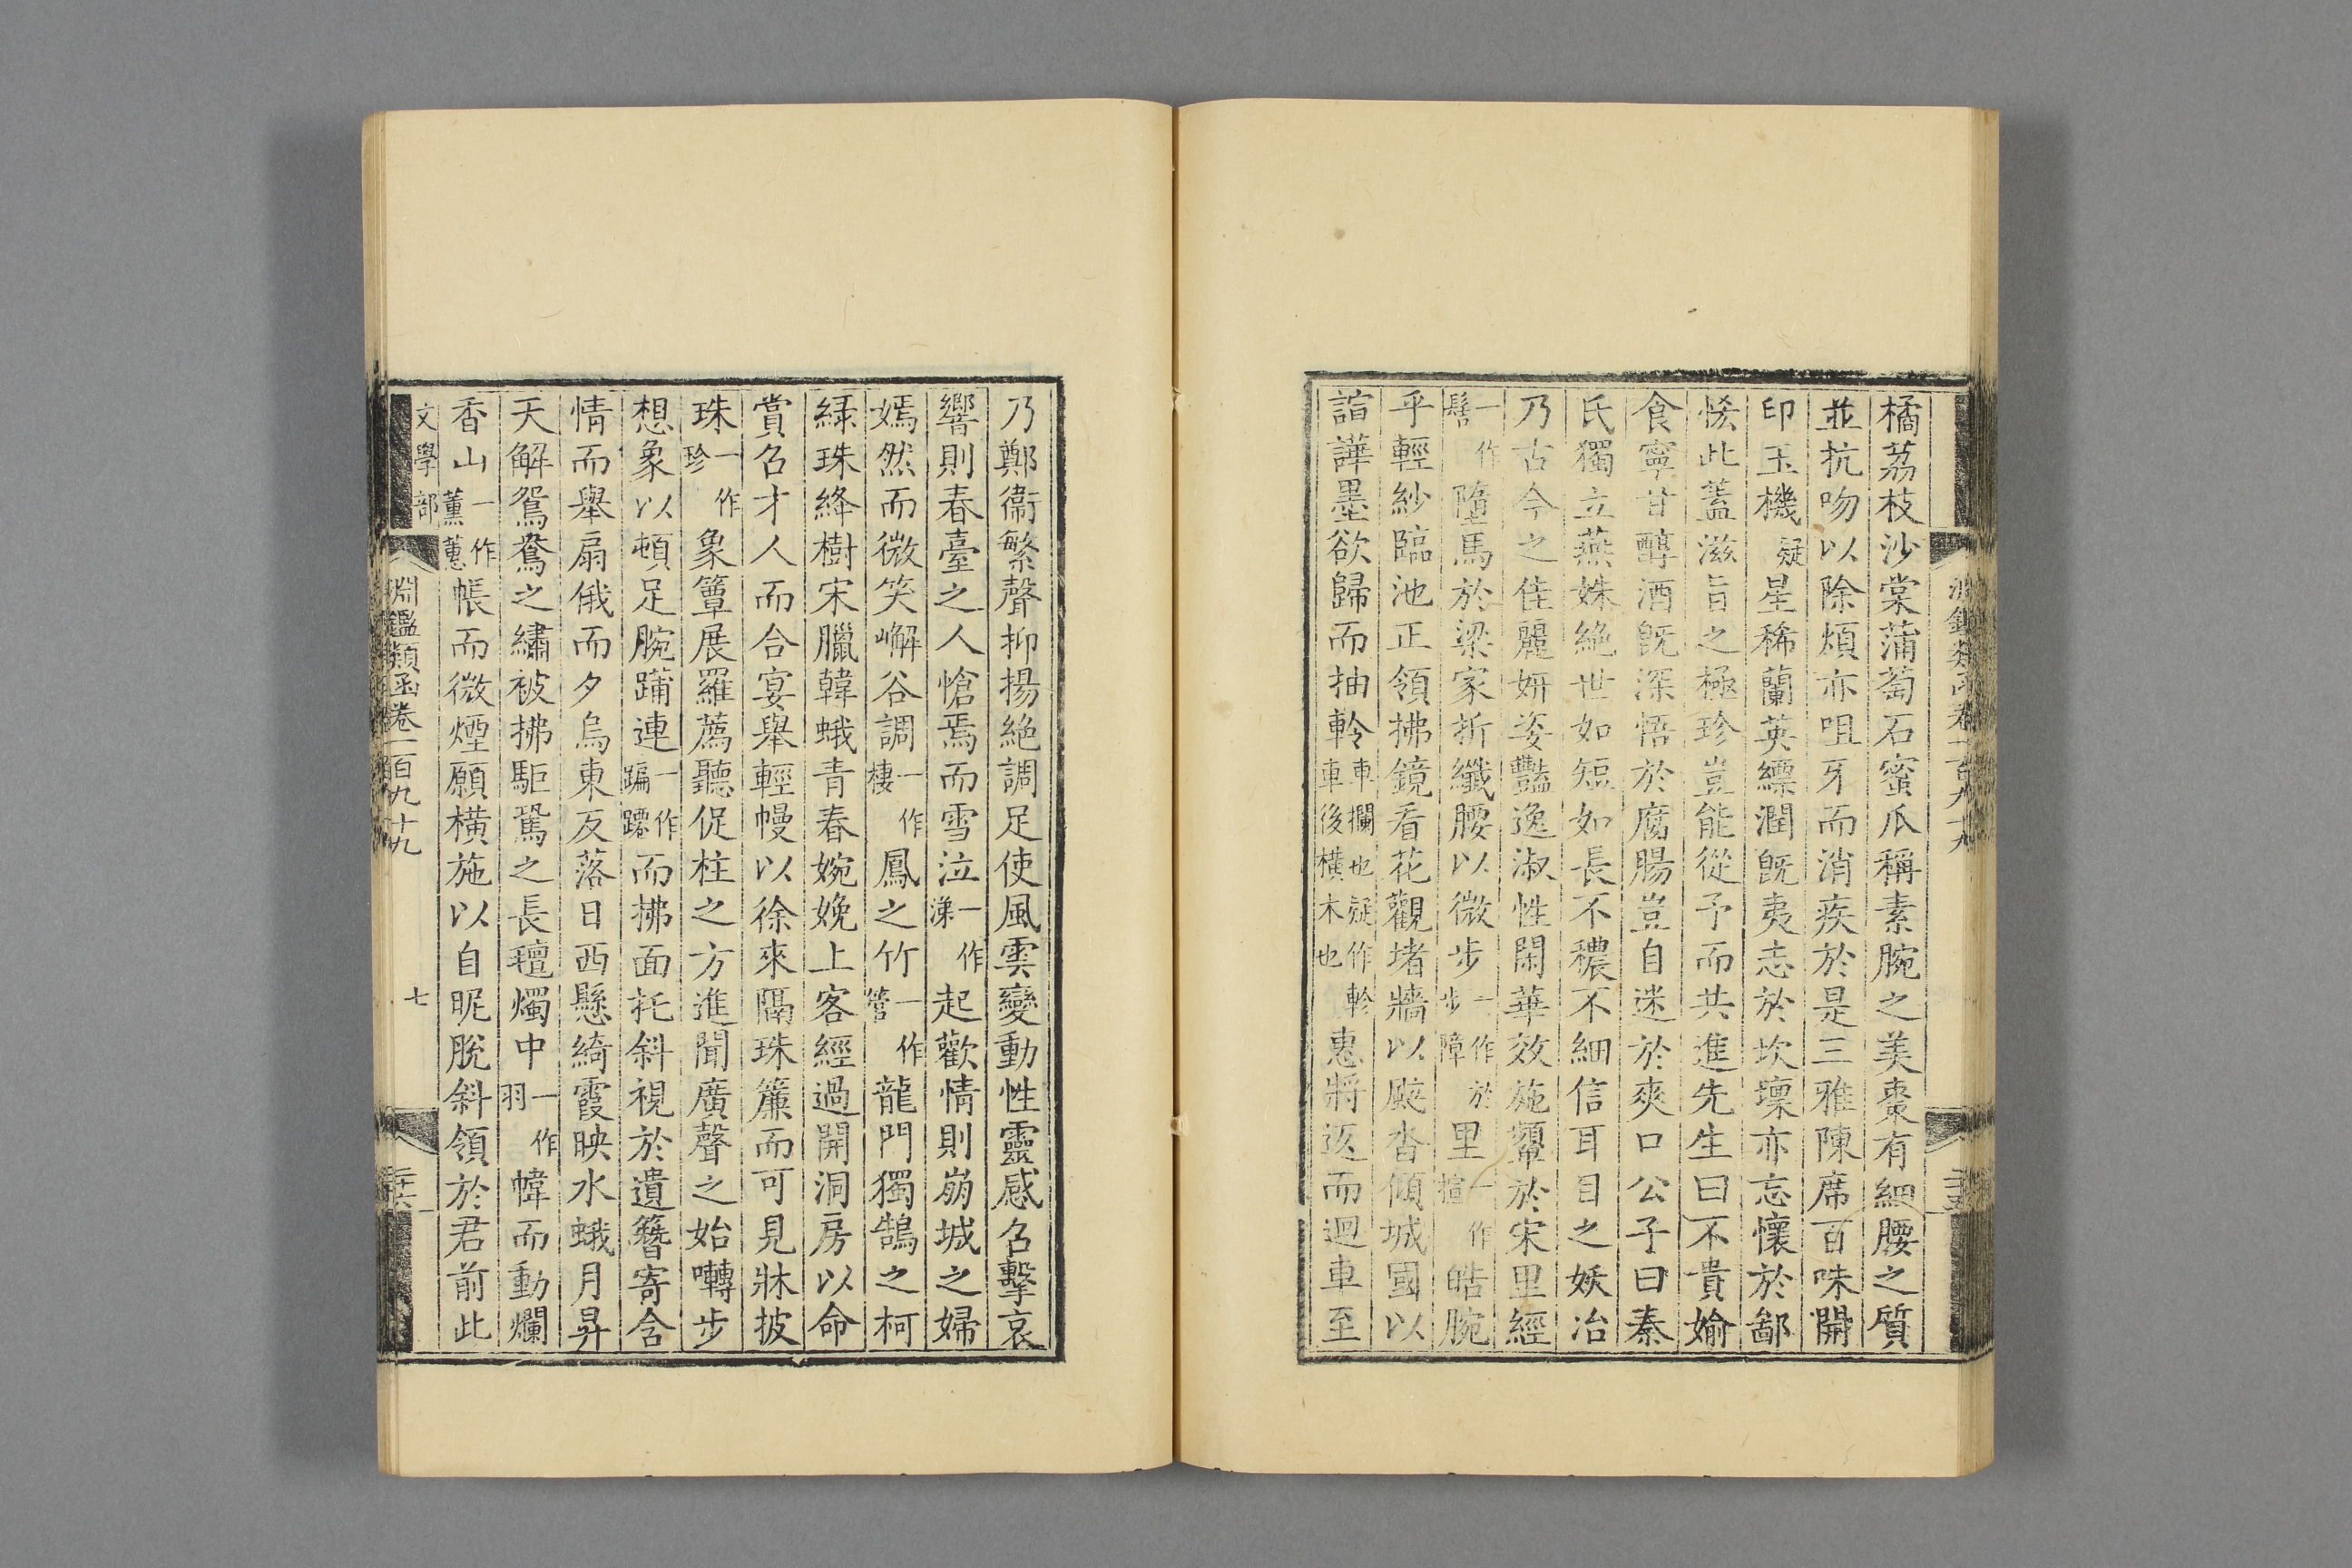 橘荔枝沙棠蒲萄石蜜爪稱素腕之美棗有細腰之質
並抗吻以除煩亦咀牙而消疾於是三雅陳席百味開
印玉機疑星稀蘭英縹潤既夷志於坎壈亦忘懷於鄙
悋此蓋滋旨之極珍豈能從予而共進先生曰不貴媮
食寧甘醇酒既深悟於腐腸豈自迷於爽口公子曰秦
氏獨立燕姝絶世如短如長不穠不細信耳目之妖冶
乃古今之佳麗妍姿豔逸淑性閑華效施顰於宋里經
一作髻墮馬於梁家折纖腰以微步一作步障於里一作楦皓腕
乎輕紗臨池正領拂鏡看花觀堵牆以颾沓傾城國以
諠譁墨欲歸而抽軨車欄也疑作軫車後橫木也惠將返而迴車至
乃鄭衞繁聲抑揚絶調足使風雲變動性靈感名擊哀
響則春臺之人愴焉而雪泣一作涕起歡情則崩城之婦
嫣然而微笑嶰谷調一作棲鳳之竹一作管龍門獨鵠之柯
綠珠絳樹宋臘韓娥青春婉娩上客經過開洞房以命
賞召才人而合宴舉輕幔以徐來隔珠簾而可見牀披
珠一作珍象簟展羅薦聽促柱之方進聞廣聲之始囀步
想象以頓足腕踊連一作蹁躚而拂面托斜視於遺簪寄含
情而舉扇俄而夕烏東反落日西懸綺霞映水蛾月昇
天解鴛鴦之繡被拂駏駕之長氊燭中一作羽幃而動爛
香山一作薰蕙帳而微煙願橫施以自昵脫斜領於君前此
文學部
淵鑑類函卷一百九十九
七